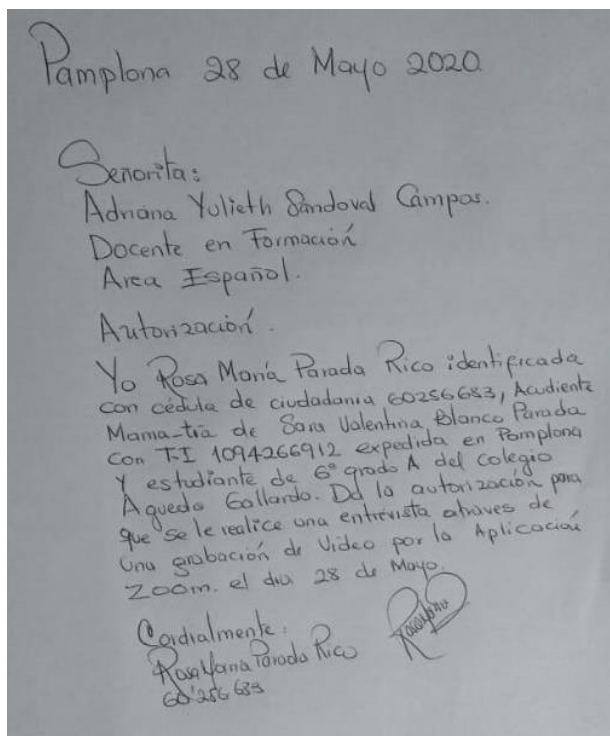 Pamplona 28 de Mayo 2020
Señorita:
Adriana Yulieth Sandoval Campos.
Docente en Formación
Area Español.
Autorización.
Yo Rosa María Parada Rico identificada
con cédula de ciudadania 60256683, Acudiente
Mama-tia de Sara Valentina Blanco Parada
Con T.I 1094266912 expedida en Pamplona
Y estudiante de 6º grado A del colegio
Agueda Gallardo. Dó la autorización para
que se le realice una entrevista atraves de
Una grabación de Video por la Aplicación
Zoom. el dia 28 de Mayo.
Cordialmente:
Rosa Maria Parada Rico
60'256 683